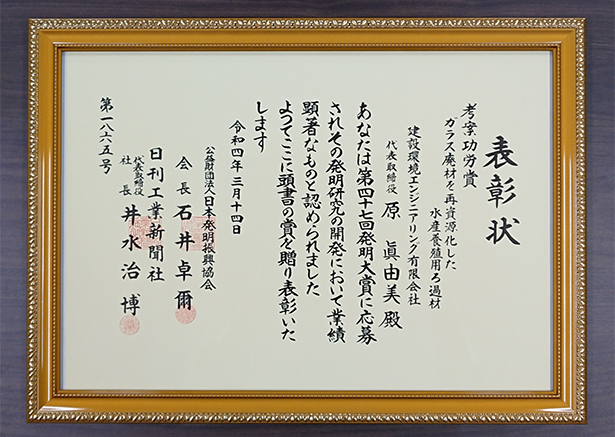 表彰状
考案功労賞
ガラス廃材を再資源化した
水産養殖用ろ過材
建設環境エンジニアリング有限会社
代表取締役 原 眞由美 殿
あなたは第四十七回発明大賞に応募
されその発明研究の開発において業績
顕著なものと認められました
よつてここに頭書の賞を贈り表彰いた
します
令和四年三月十四日
公益財団法人日本発明振興協会
会長 石井卓爾
日刊工業新聞社
代表取締役
社長 井水治博
第一八六五号